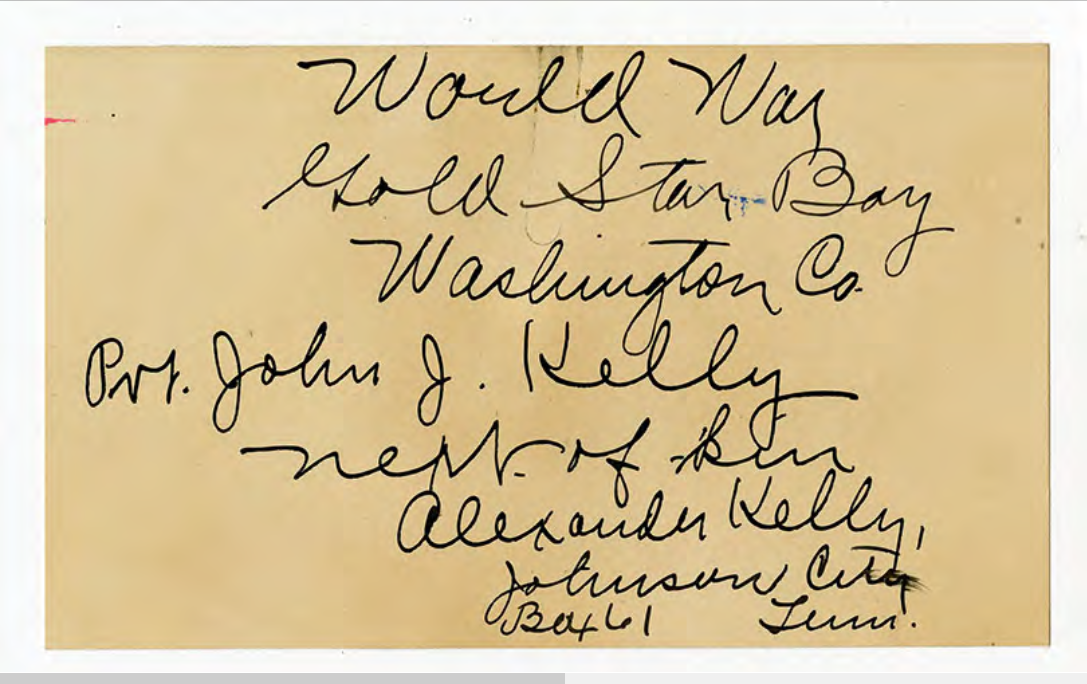 World War
Gold Star Boy
Washington Co.
Pvt. John J. Kelly
next of kin
Alexander Kelly,
Johnson City
Box 61 Tenn.